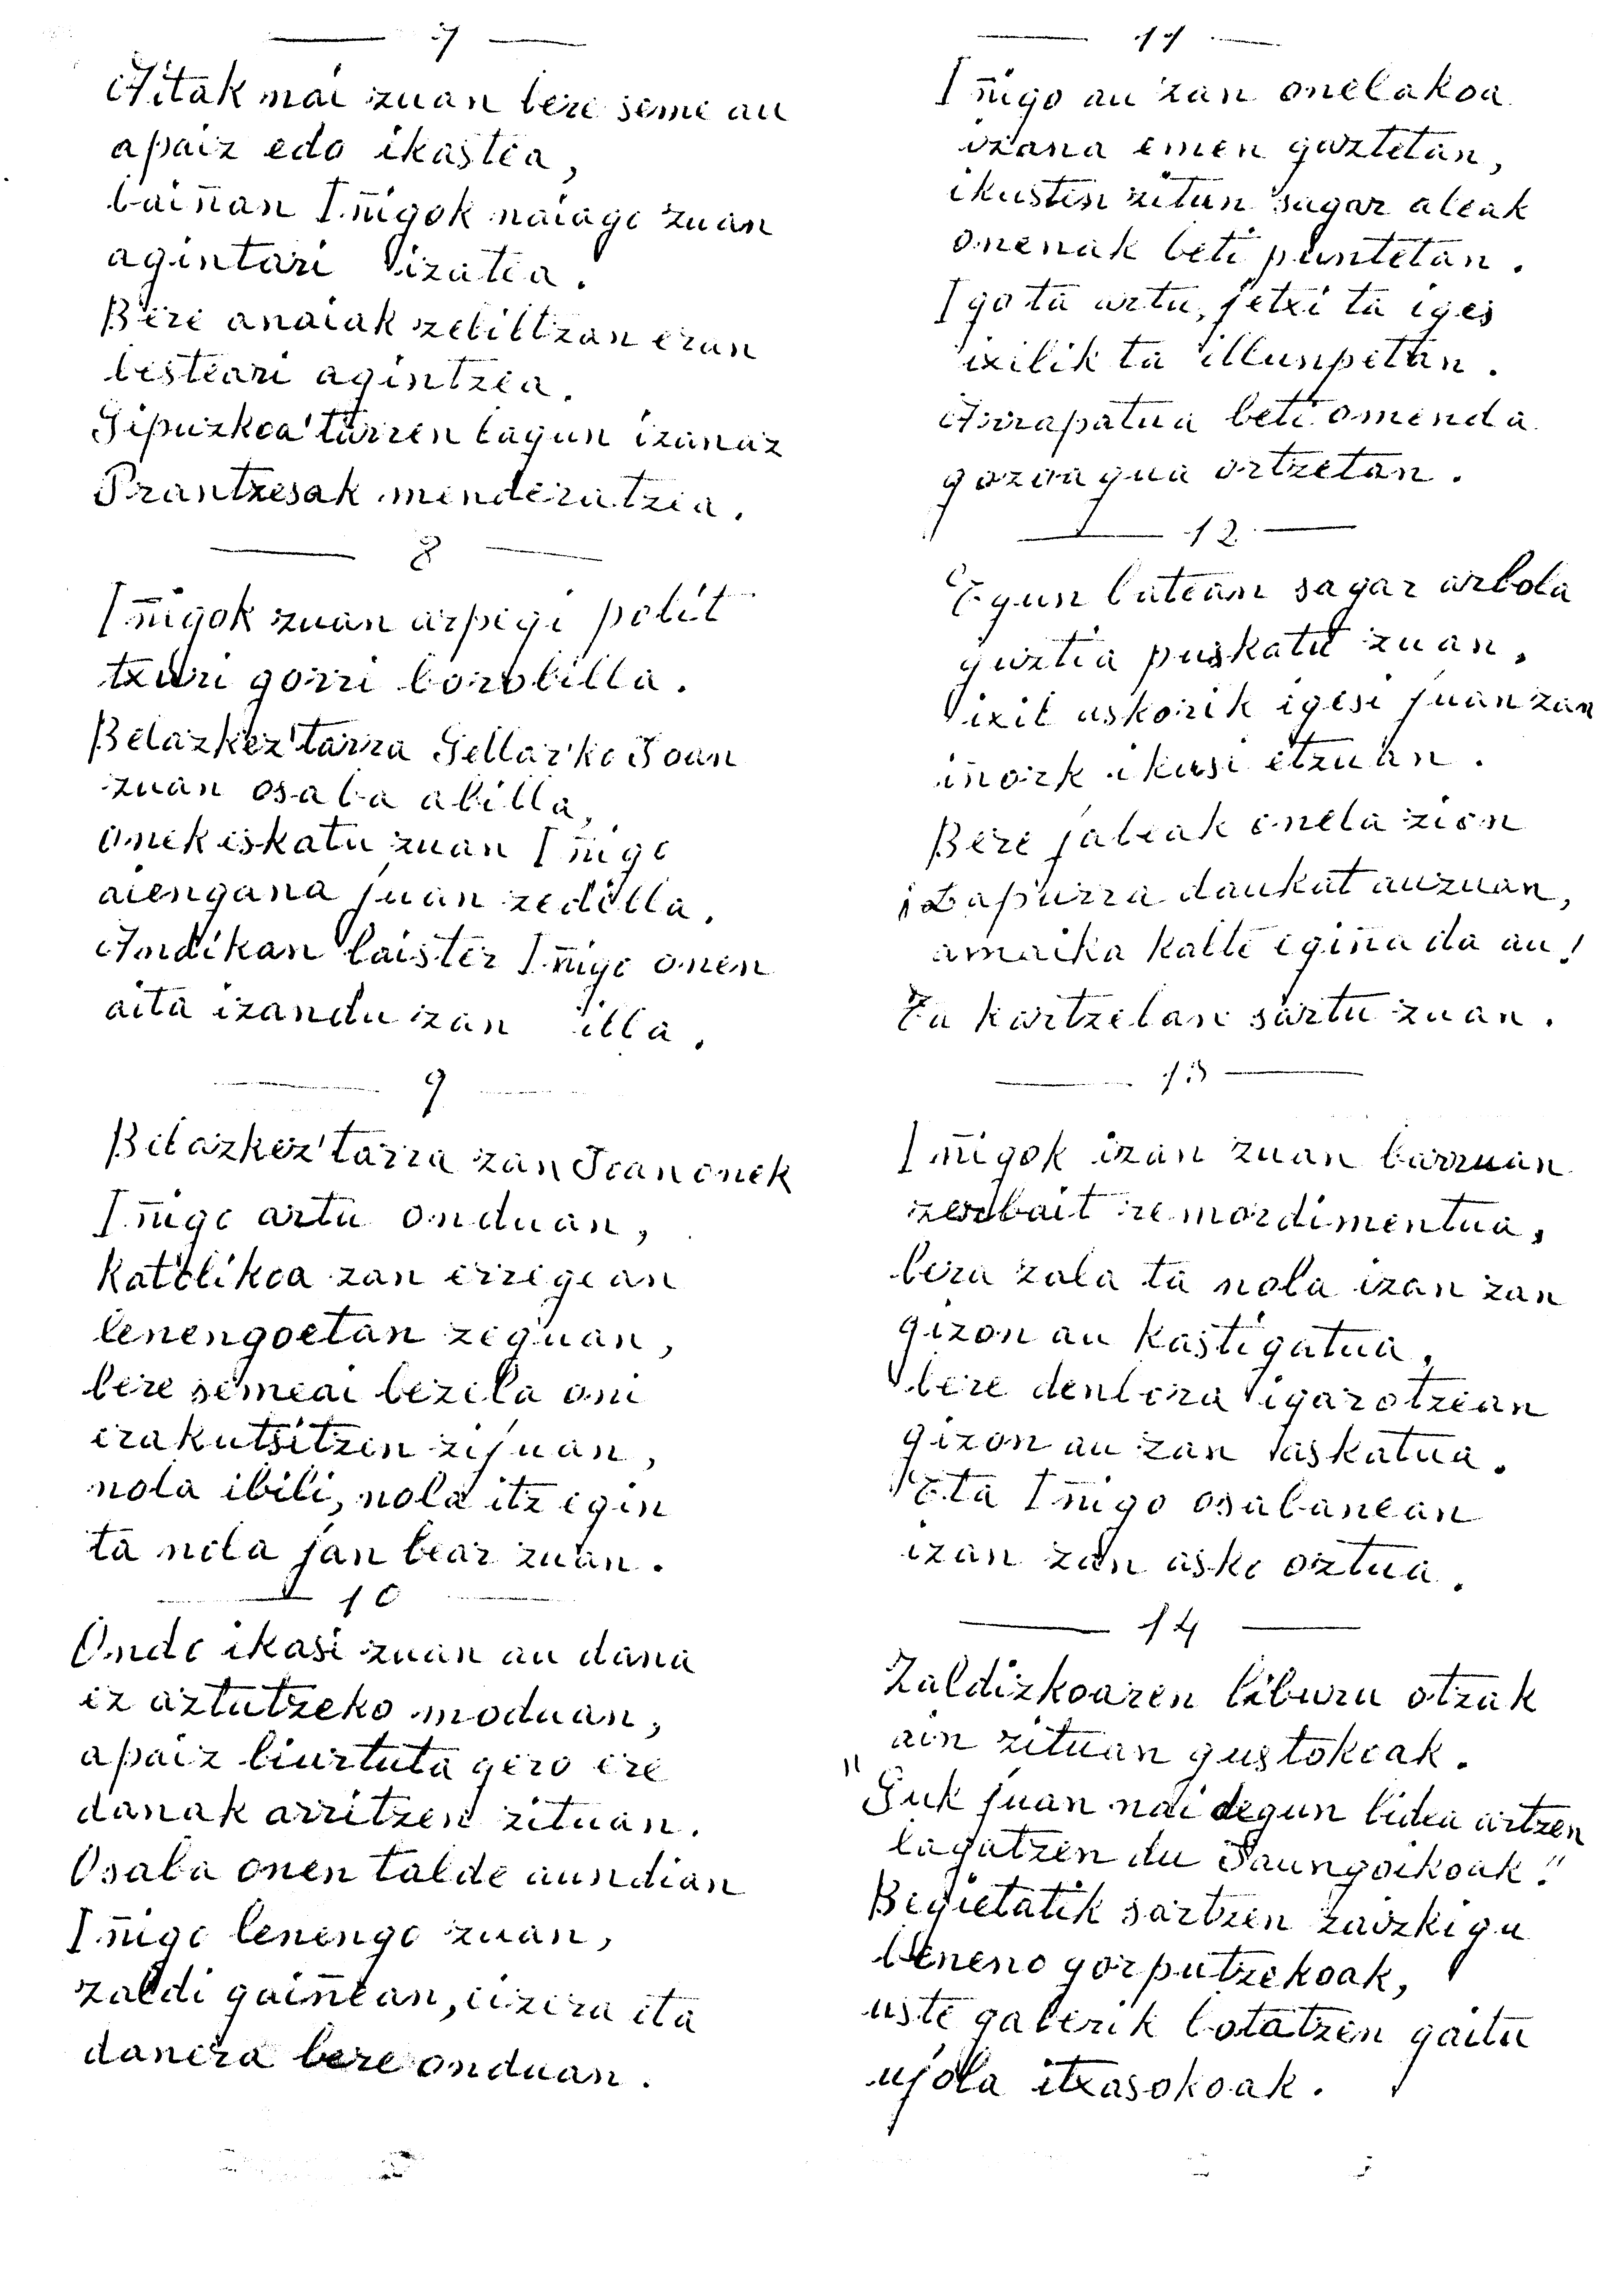 7
Aitak nai zuan bere seme au
apaiz edo ikastea,
baiñan Iñigok naiago zuan
agintari izatea.
Bere anaiak zebiltzan eran
besteari agintzea.
Gipuzkoa'tarren lagun izanaz
Prantzesak menderatzea.
8
Iñigok zuan arpegi polit
txuri gorri borobilla.
Belazkez'tarra Gellar'ko Joan
zuan osaba abilla,
onek eskatu zuan Iñigo
aiengana juan zedilla.
Andikan laister Iñigo onen
aita izandu zan illa.
9
Belazkez'tarra zan Joan onek
Iñigo artu onduan,
katolikoa zan erregean
lenengoetan zeguan,
bere semeai bezela oni
erakutsitzen zijuan,
nola ibili, nola itz egin
ta nola jan bear zuan.
10
Ondo ikasi zuan au dana
ez aztutzeko moduan,
apaiz biurtuta gero ere
danak arritzen zituan.
Osaba onen talde aundian
Iñigo lenengo zuan,
zaldi gaiñean, eizera eta
danera bere onduan.
11
Iñigo au zan onelakoa
izana emen gaztetan,
ikusten zitun sagar aleak
onenak beti puntetan.
Igo ta artu, jetxi ta iges
ixilik ta illunpetan.
Arrapatua beti omen da
gozoagua ortzetan.
12
Egun batean sagar arbola
guztia puskatu zuan,
ixil askorik igesi juan zan
iñork ikusi etzuan.
Bere jabeak onela zion
¡Lapurra daukat auzuan,
amaika kalte egiña da au!
Ta kartzelan sartu zuan.
13
Iñigok izan zuan barruan
zerbait remordimentua,
bera zala ta nola izan zan
gizon au kastigatua,
bere denbora igarotzean
gizon au zan laskatua.
Eta Iñigo osabanean
izan zan asko oztua.
14
Zaldizkoaren liburu otzak
ain zituan gustokoak.
"Guk juan nai degun bidea artzen
lagatzen du Jaungoikoak."
Begietatik sartzen zaizkigu
beneno gorputzekoak,
uste gaberik botatzen gaitu
ujola itxasokoak.